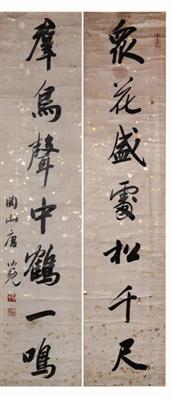 眾花盛處松千尺
羣鳥聲中鶴一鳴
圌山唐